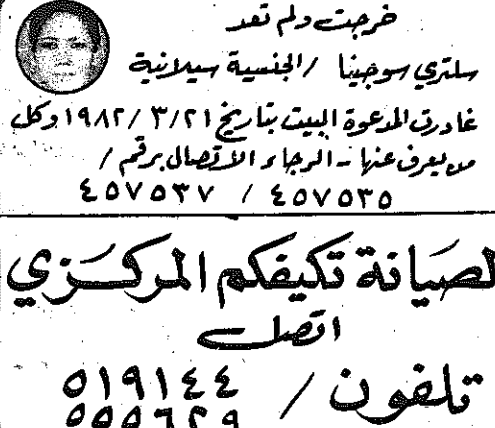 خرجت ولم تعد
سلتري سوجينا / الجنسية سيلانية
غادرت المدعوة البيت بتاريخ ٢١/ ٣/ ١٩٨٢ وكل
من يعرف عنها - الرجاء الاتصال برقم /
٤٥٧٥٣٥ / ٤٥٧٥٣٧
لصيانة تكيفكم المركزي
اتصل
تلفون / ٥١٩١٤٤
٥٥٥٦٢٩